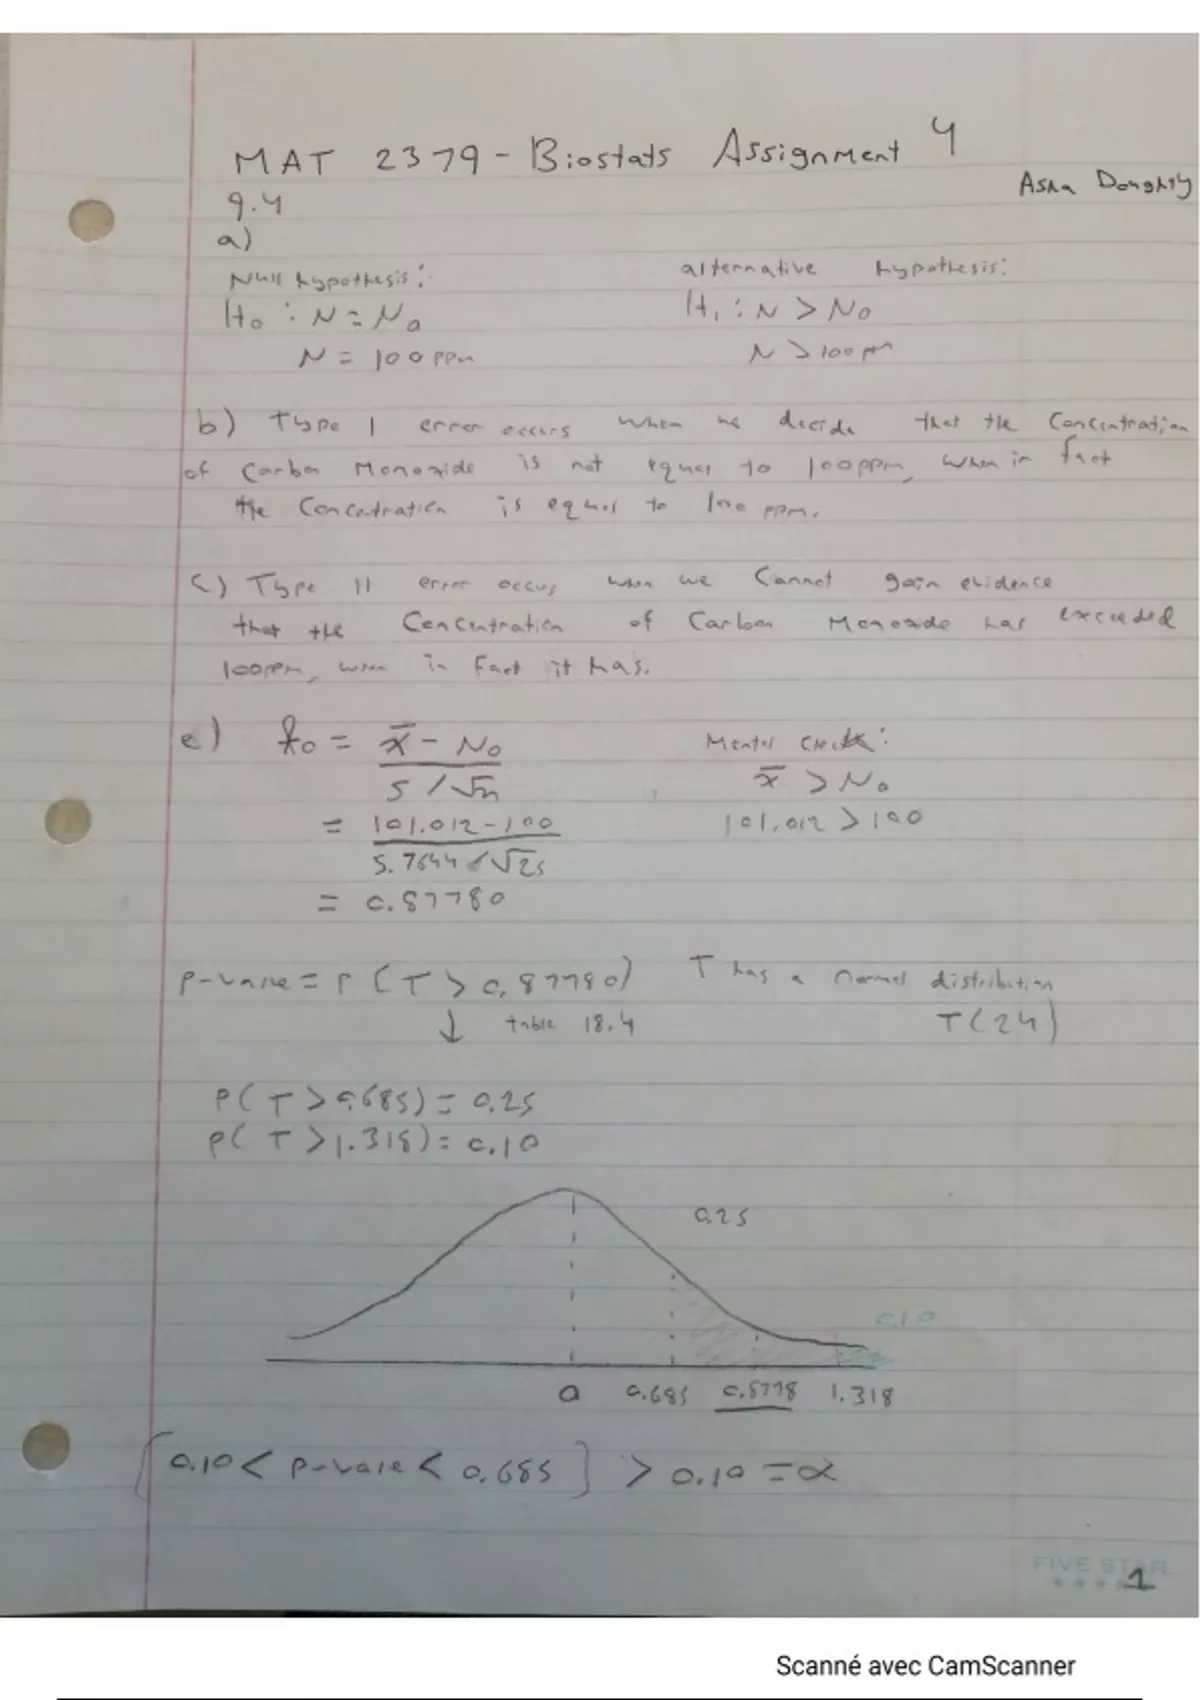 MAT 2379 - Biostats Assignment 4
Asha Doughty
9.4
a)
Null hypothesis: alternative hypothesis:
H₀ : N = N₀ H₁ : N > N₀
N = 100 ppm N > 100 ppm
b) Type I error occurs when we decide that the Concentration
of Carbon Monoxide is not equal to 100ppm, when in fact
the Concentration is equal to 100 ppm.
c) Type II error occurs when we Cannot gain evidence
that the Concentration of Carbon Monoxide has exceeded
100ppm, when in fact it has.
e) t₀ = x̄ - N₀ Mental check:
s / √n x̄ > N₀
= 101.012 - 100 101.012 > 100
5.7644 / √25
= 0.87780
p-value = P (T > 0.87780) T has a normal distribution
↓ table 18.4 T(24)
P( T > 0.685) = 0.25
P( T > 1.318) = 0.10
0.25
0.10
0 0.685 0.8778 1.318
[0.10 < p-value < 0.685] > 0.10 = α
FIVE STAR
1
Scanné avec CamScanner